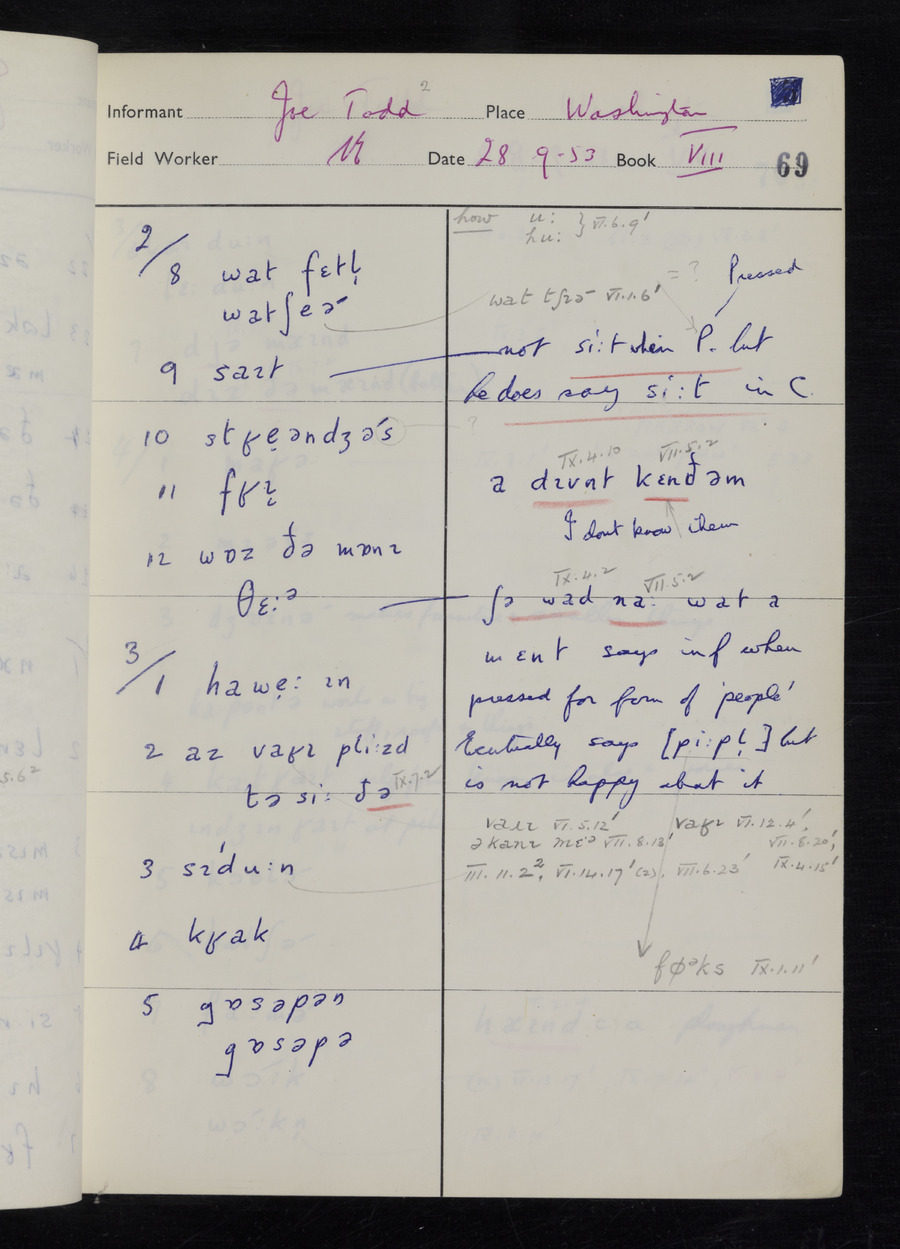 Informant Joe Todd 2 Place Washington
Field Worker Date 28 9-53 Book VIII 69
2/
8 wat fɛtl̩
watʃeɚ
9 saɪt
10 stʁẹəndʒɚs
11 fʁɪ̣
12 wɒz ðə mɒnɪ
θɛ:ᵊ
3/
1 hawẹ: ɪn
2 aɪ vaʁɪ pli:zd
tə si: ðə IX.7.2
3 sɪ'du:n
4 kʁak
5 gɒsəpən
gɒsəpə
how u: } VI.6.9'
hu:
= ? Pressed
wat tʃɪɚ VI.1.6'
not si:t when P. but
he does say si:t in C.
?
IX.4.10 VII.5.2
a dɪvnt kɛnðəm
I dont know them
IX.4.2 VII.5.2
ʃə wad na: wat a
mɛnt says inf when
pressed for form of 'people'
Eventually says [pi:pl̩] but
is not happy about it
vaɪɪ VI.5.12' vaʁɪ VI.12.4',
əkanɪ mɛᵊ VII.8.13' VII.8.20',
III.11.2², VI.14.17' (2), VII.6.23' IX.4.15'
føᵊks IX.1.11'